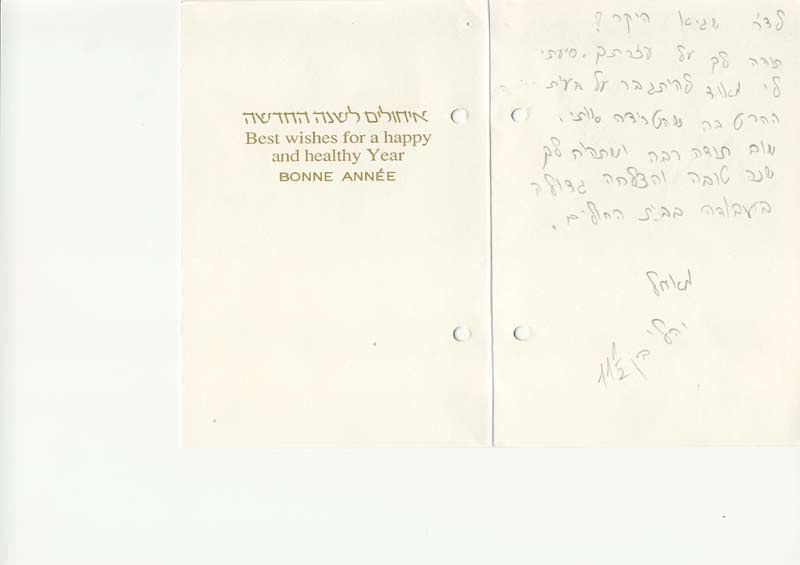 איחולים לשנה החדשה
Best wishes for a happy
and healthy Year
BONNE ANNÉE
לד״ר שגיא היקר
תודה לך על עזרתך. סיעת
לי מאוד להתגבר על בעית
ההרטבה שהטרידה אותי.
שוב תודה רבה ושתהיה לך
שנה טובה והצלחה גדולה
בעבודה בבית החולים.
מאחל
בן 11½